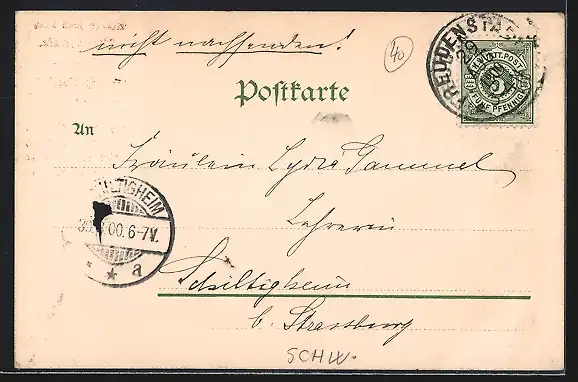 nicht nachsenden!
40
FREUDENSTADT
29
K. WÜRTT. POST
5
FÜNF PFENNIG
Postkarte
An
Fräulein Lydia Sammel
Lehrerin
SCHILTIGHEIM
00. 6-7V.
* a
Schiltigheim
b. Strassburg
SCHW.